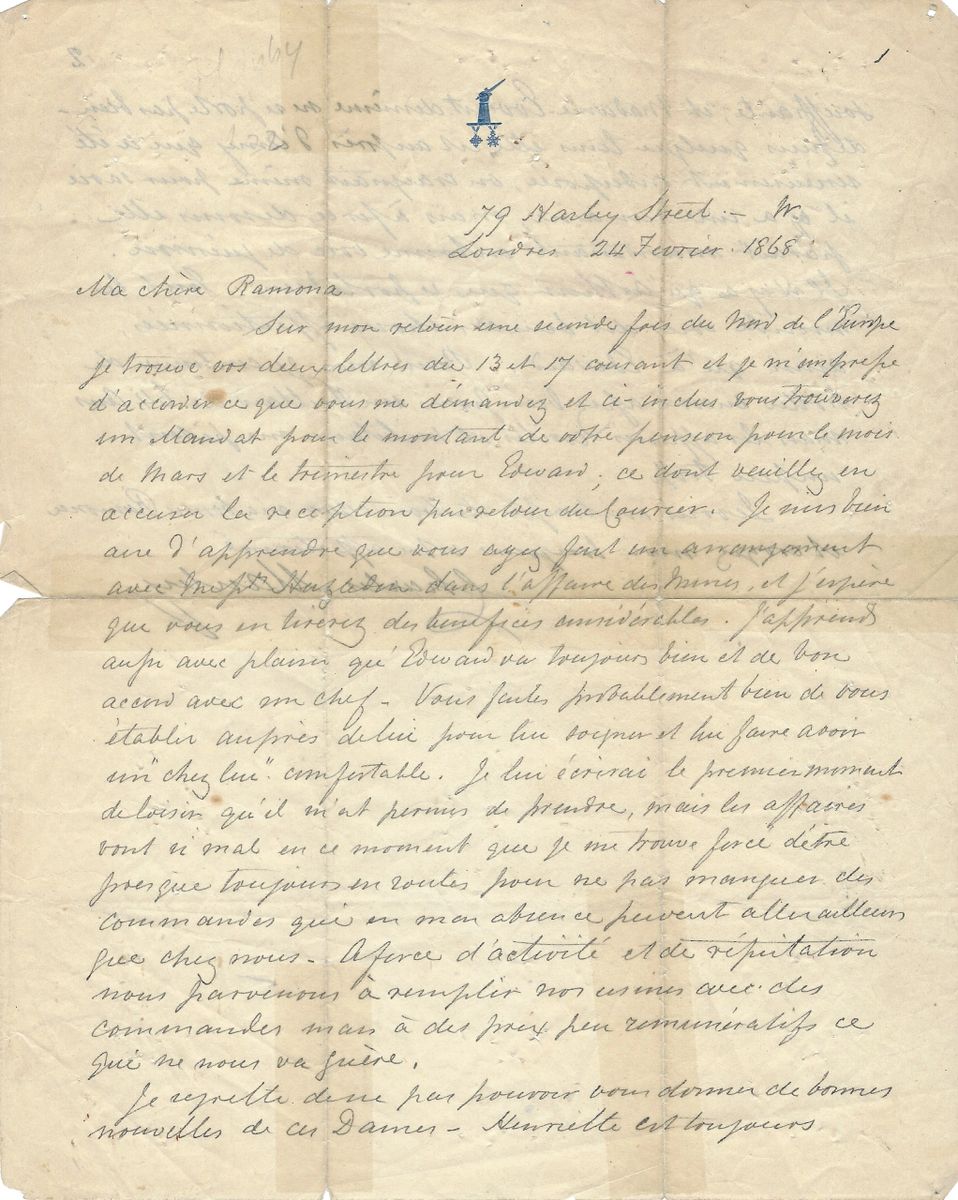 1
79 Harley Street - W
Londres 24 Fevrier 1868
Ma chère Ramona
Sur mon retour une seconde fois du Nord de l'Europe
je trouve vos deux lettres du 13 et 17 courant et je m'empresse
d'accorder ce que vous me démandez et ci-inclus vous trouverez
un Mandat pour le montant de votre pension pour le mois
de Mars et le trimestre pour Edward, ce dont veuillez en
accuser la reception par retour du Courier. Je suis bien
aise d'apprendre que vous ayez fait un arrangement
avec dans l'affaire des Mines, et j'espère
que vous en tirerez des benefices considérables. J'apprends
aussi avec plaisir qu'Edward va toujours bien et de bon
accord avec son chef - Vous faites probablement bien de vous
établir auprès de lui pour lui soigner et lui faire avoir
un "chez lui" comfortable. Je lui écrirai le premier moment
de loisir qu'il m'est permis de prendre, mais les affaires
vont si mal en ce moment que je me trouve forcé d'être
presque toujours en routes pour ne pas manquer des
commandes qui en mon absence peuvent aller ailleurs
que chez nous - A force d'activité et de réputation
nous parvenons à remplir nos usines avec des
commandes mais à des prix peu rémunératifs ce
qui ne nous va guère.
Je regrette de ne pas pouvoir vous donner de bonnes
nouvelles de ces Dames - Henriette est toujours